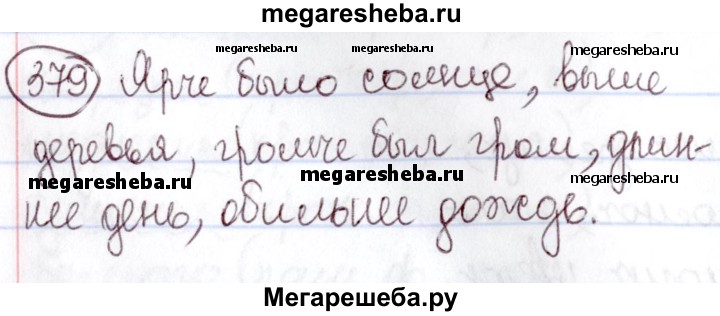 megaresheba.ru
megaresheba.ru megaresheba.ru megaresheba.ru
379 Ярче было солнце, выше
деревья, громче был гром, длин-
megaresheba.ru megaresheba.ru megaresheba.ru
нее день, обильнее дождь.
Мегарешеба.ру